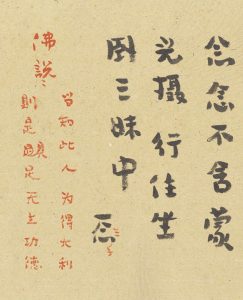 念念不舍蒙
光摄行住坐
卧三昧中
佛說
当知此人為得大利
則是具足无上功德